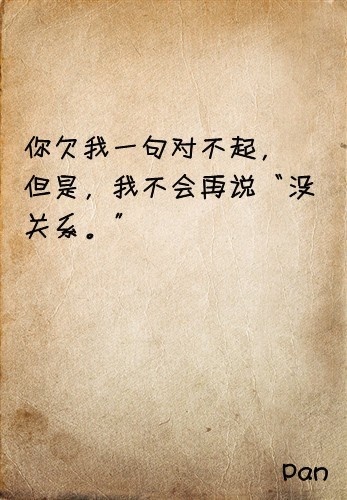 你欠我一句对不起，
但是，我不会再说“没
关系。”
Pan